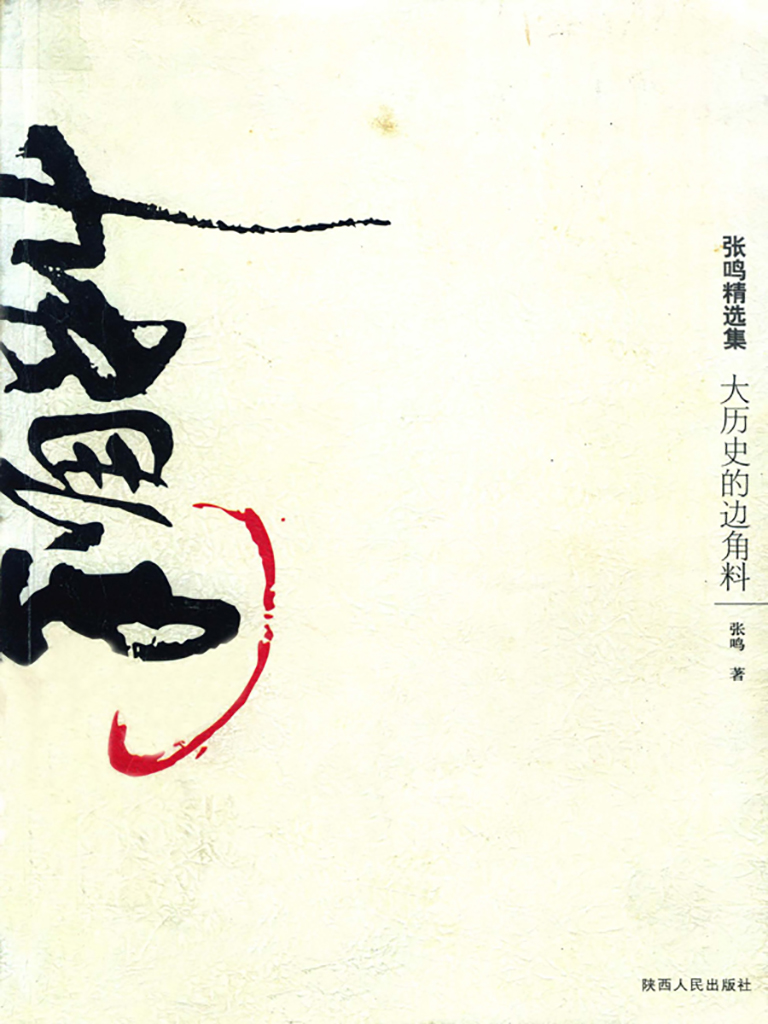 张鸣精选集
大历史的边角料
张鸣 著
陕西人民出版社